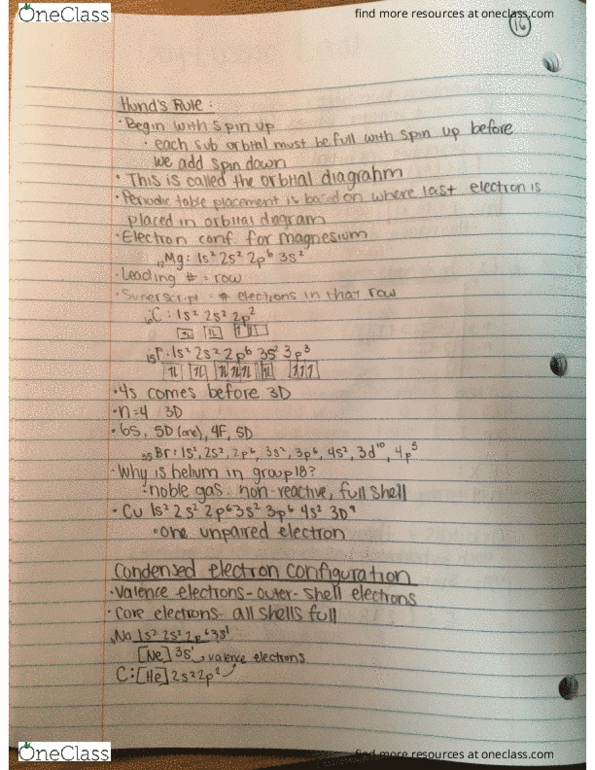 OneClass
find more resources at oneclass.com
16
Hund's Rule:
· Begin with spin up
· each sub orbital must be full with spin up before
we add spin down
· This is called the orbital diagrahm
· Periodic table placement is based on where last electron is
placed in orbital diagram
· Electron conf. for magnesium
₁₂Mg: 1s² 2s² 2p⁶ 3s²
· Leading # = row
· Superscript = # electrons in that row
₆C: 1s² 2s² 2p²
₁₅P: 1s² 2s² 2p⁶ 3s² 3p³
· 4s comes before 3D
· n=4 3D
· 6S, 5D (one), 4F, 5D
₃₅Br: 1s², 2s², 2p⁶, 3s², 3p⁶, 4s², 3d¹⁰, 4p⁵
· Why is helium in group 18?
· noble gas, non-reactive, full shell
· Cu 1s² 2s² 2p⁶ 3s² 3p⁶ 4s² 3D⁹
· one unpaired electron
Condensed electron configuration
· Valence electrons - outer-shell electrons
· Core electrons - all shells full
Na 1s² 2s² 2p⁶ 3s¹
[Ne] 3s¹ valence electrons
C: [He] 2s² 2p²
OneClass
find more resources at oneclass.com